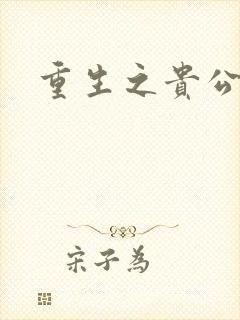 重生之貴公
宋子為